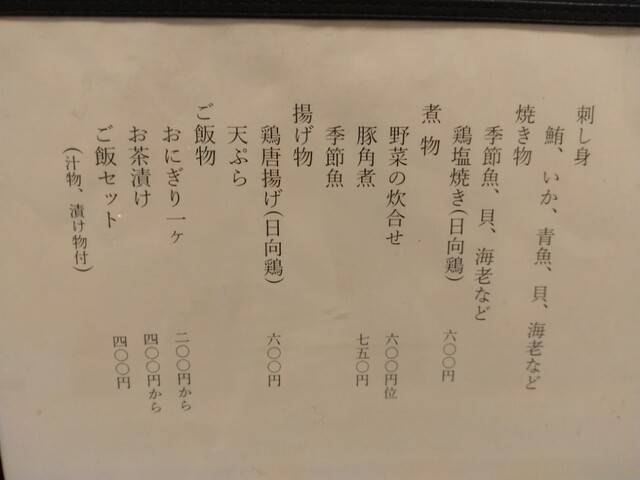 刺し身
鮪、いか、青魚、貝、海老など
焼き物
季節魚、貝、海老など
鶏塩焼き(日向鶏) 六〇〇円
煮物
野菜の炊合せ 六〇〇円位
豚角煮 七五〇円
季節魚
揚げ物
鶏唐揚げ(日向鶏) 六〇〇円
天ぷら
ご飯物
おにぎり一ヶ 二〇〇円から
お茶漬け 四〇〇円から
ご飯セット 四〇〇円
(汁物、漬け物付)